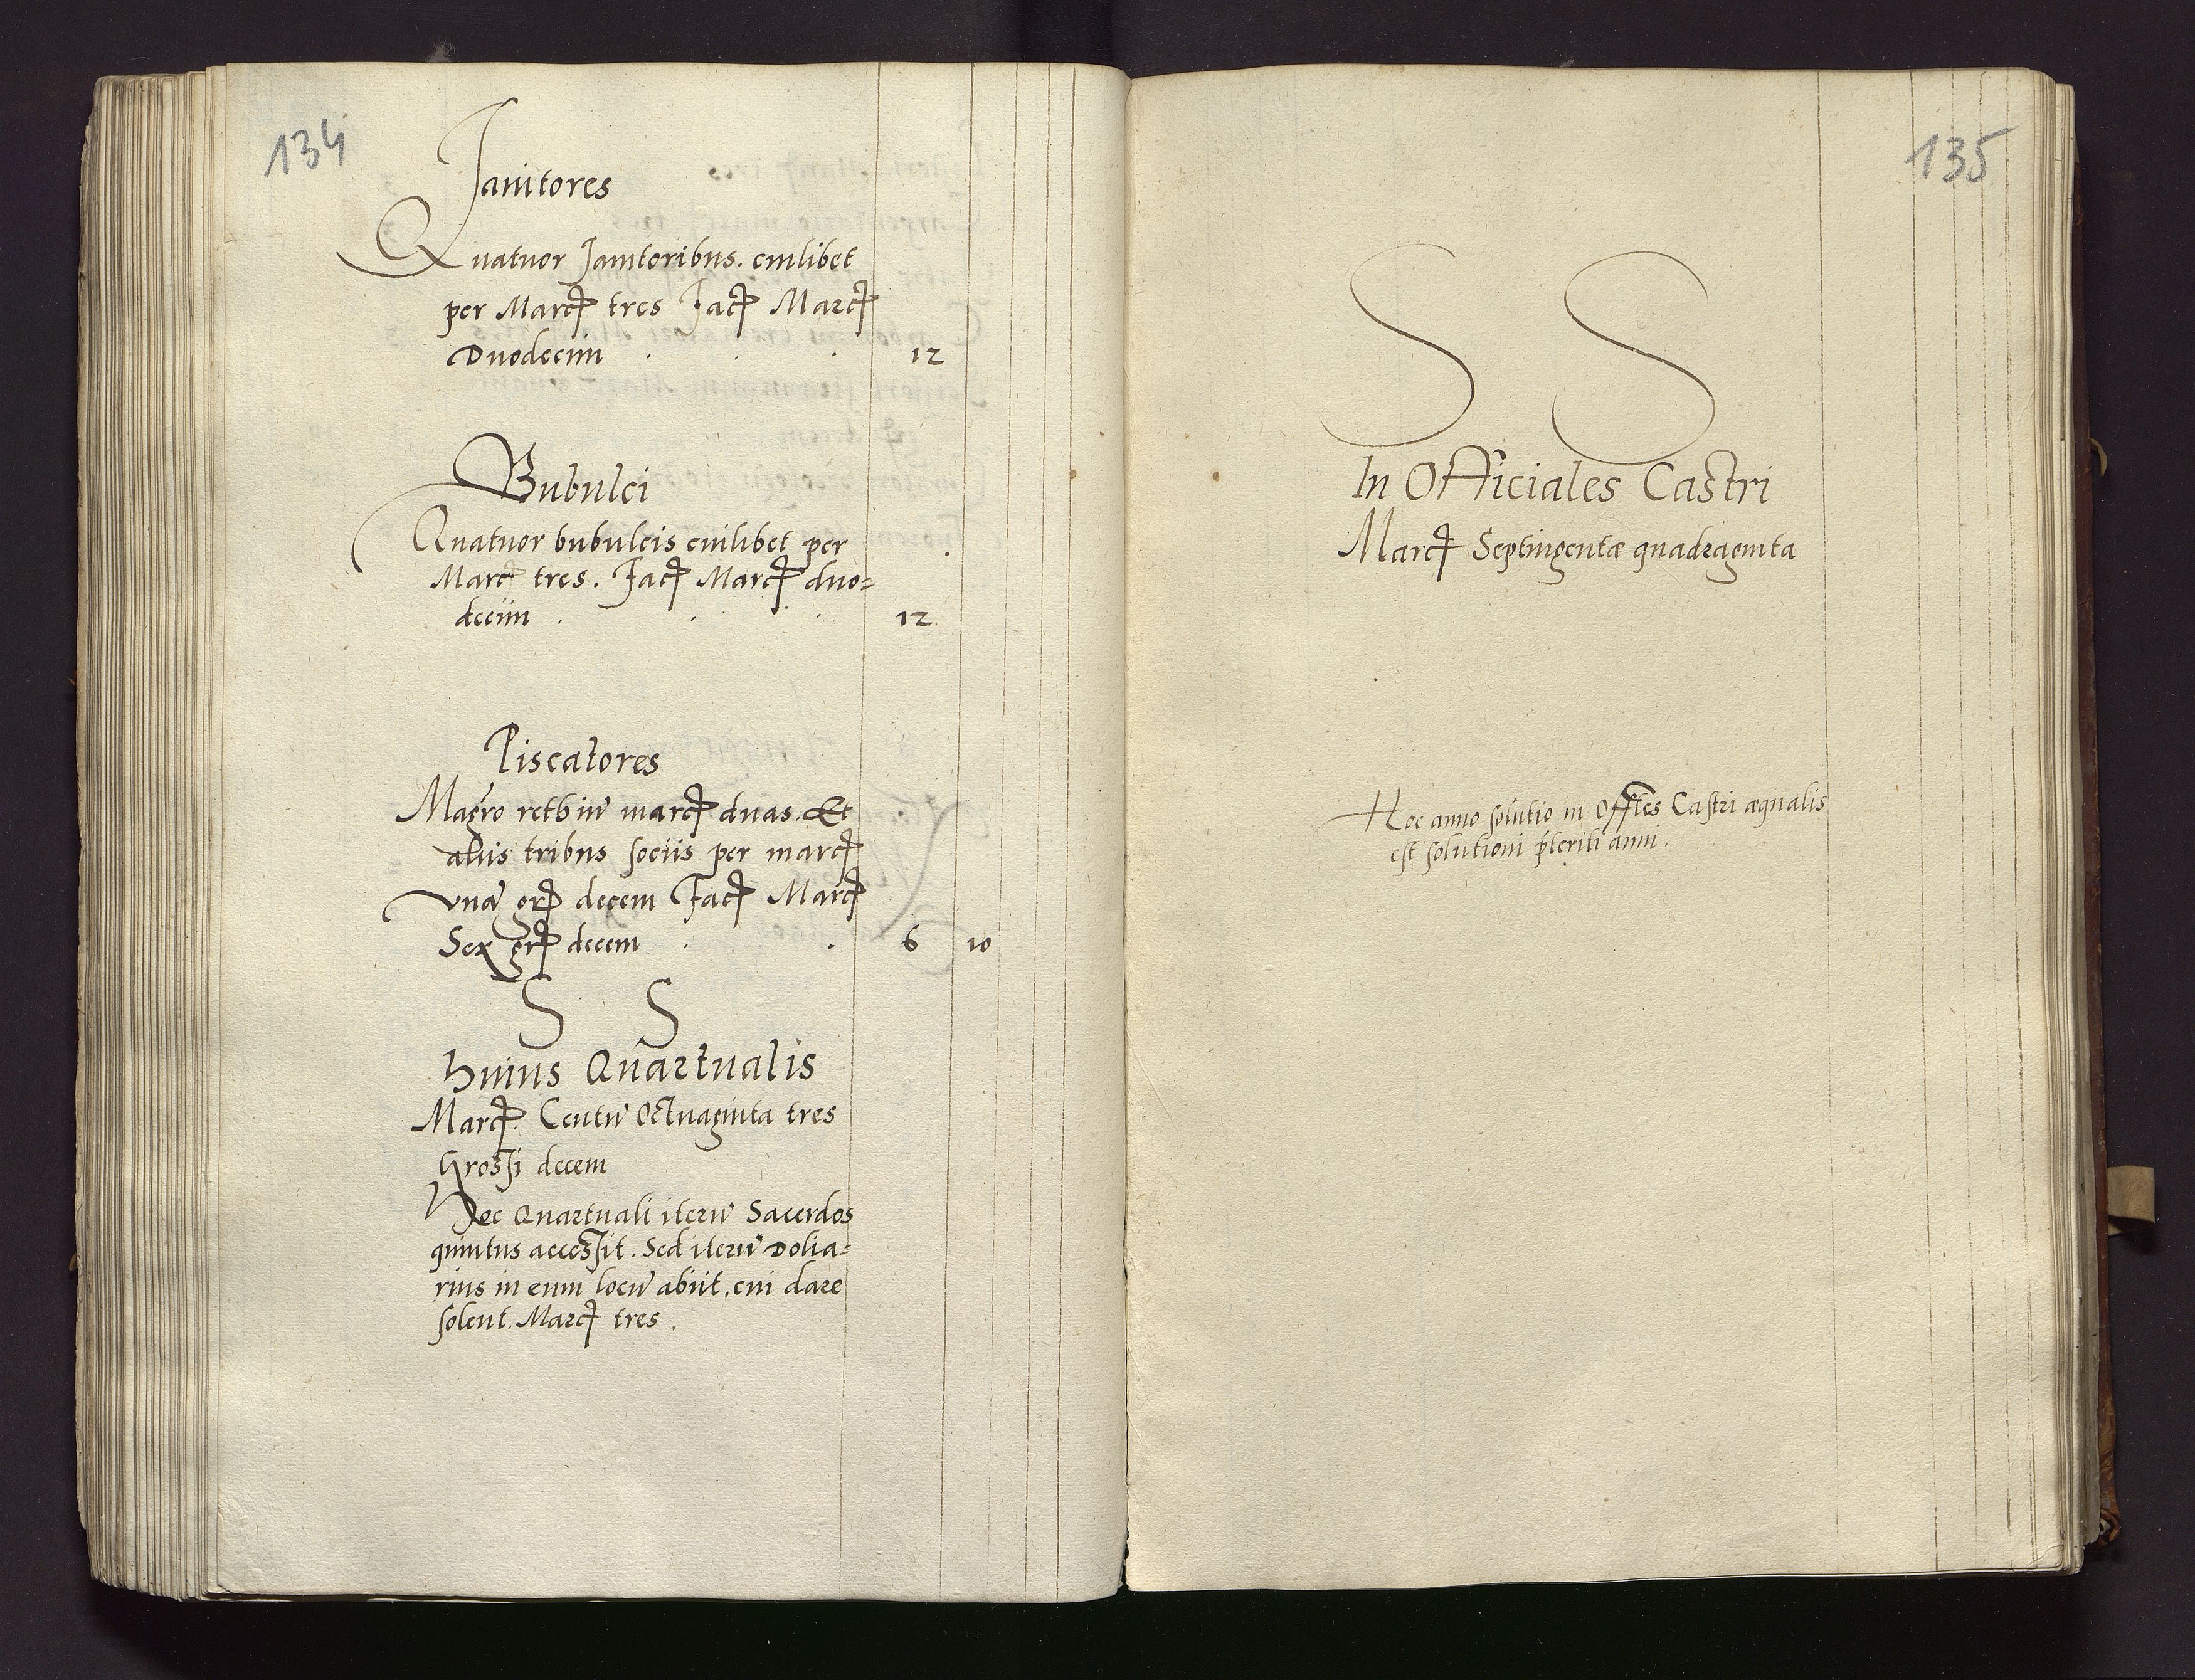 134
Janitores
Quatuor Janitoribus. cuilibet
per Marcȝ tres Facȝ Marcȝ
Duodecim . . . 12
Bubulci
Quatuor bubulcis cuilibet per
Marcȝ tres. Facȝ Marcȝ duo=
decim . . . 12
Piscatores
Magr̃o rethiũ marcȝ duas. Et
aliis tribus sociis per marcȝ
vnã grȝ decem Facȝ Marcȝ
Sex grȝ decem . . 6 10
S S
Huius Quartualis
Marcȝ Centũ Octuaginta tres
Grossi decem
Hoc Quartuali iterũ Sacerdos
quintus accessit. Sed iterũ Dolia=
rius in eum locũ abiit, cui dare
solent. Marcȝ tres.
135
S S
In Officiales Castri
Marcȝ Septingentæ quadraginta
Hoc anno solutio in Offtes Castri æqualis
est solutioni p̃teriti anni.